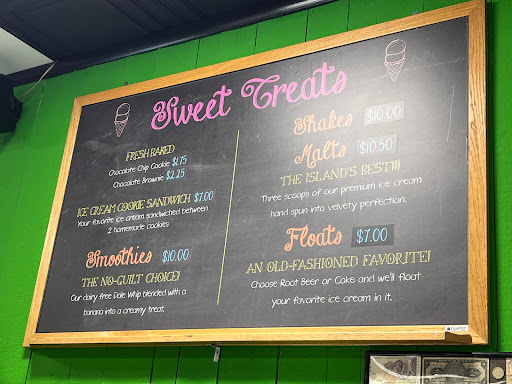 Sweet Treats
FRESH BAKED
Chocolate Chip Cookie $1.75
Chocolate Brownie $2.25
ICE CREAM COOKIE SANDWICH $7.00
Your favorite ice cream sandwiched between
2 homemade cookies
Smoothies $10.00
THE NO-GUILT CHOICE!
Our dairy free Dole Whip blended with a
banana into a creamy treat.
Shakes $10.00
Malts $10.50
THE ISLAND'S BEST!!!
Three scoops of our premium ice cream
hand spun into velvety perfection.
Floats $7.00
AN OLD-FASHIONED FAVORITE!
Choose Root Beer or Coke and we'll float
your favorite ice cream in it.